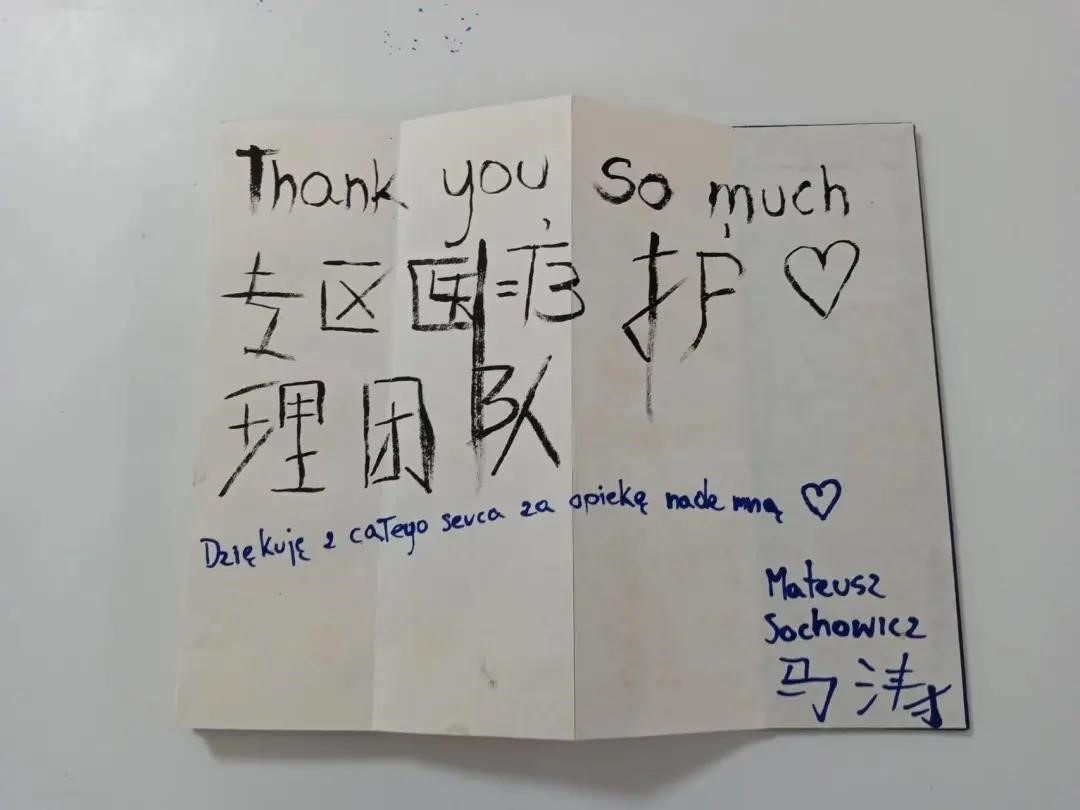 Thank you so much
专区医疗护♡
理团队
Dziękuję z całego serca za opiekę nade mną ♡
Mateusz
Sochowicz
马涛